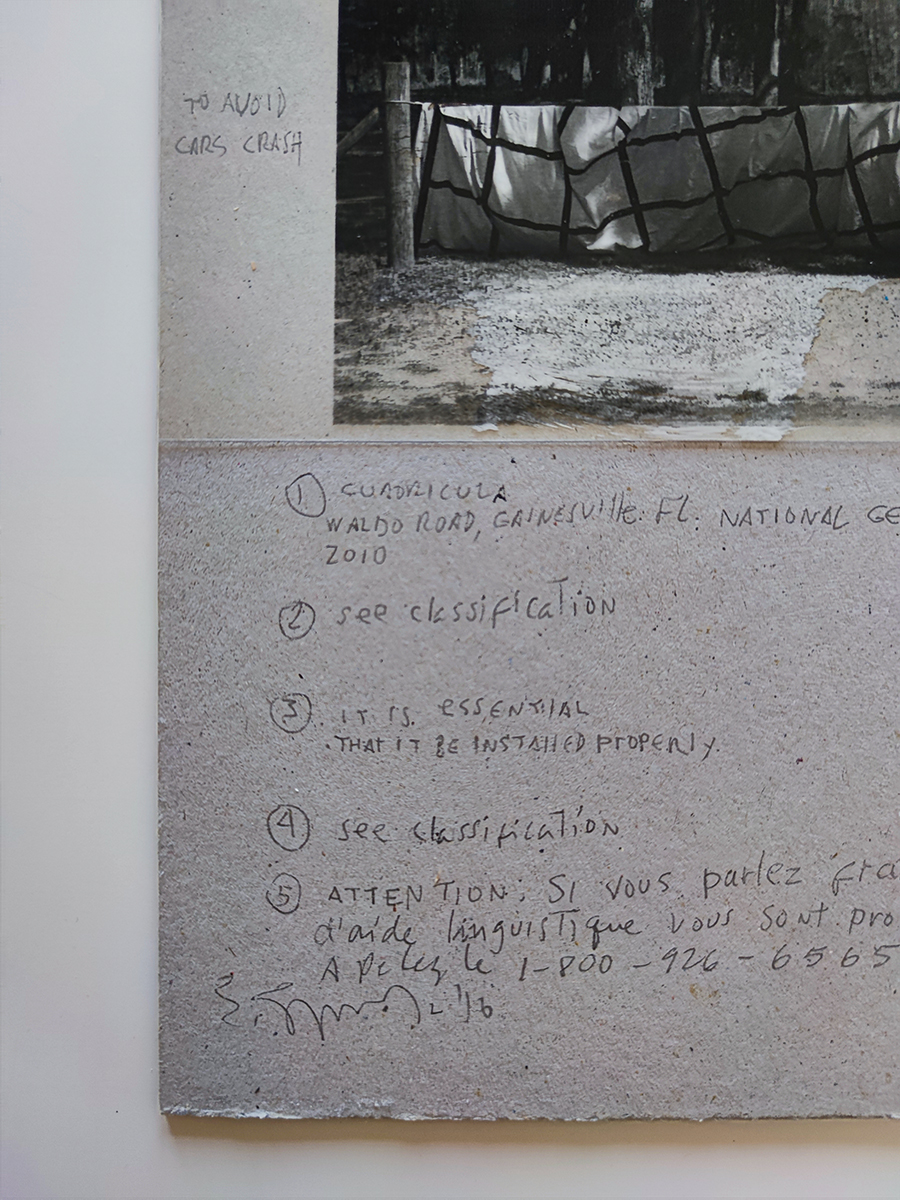 TO AVOID
CARS CRASH
① CUADRICULA
WALDO ROAD, GAINESVIllE. FL. NATIONAL GE
2010
② see classification
③ IT IS. ESSENTIAL
THAT IT BE INSTAllED PROPERly.
④ see classification
⑤ ATTENTION: SI vous parlez fra
d'aide linguistique vous sont pro
Apelez le 1-800-926-6565